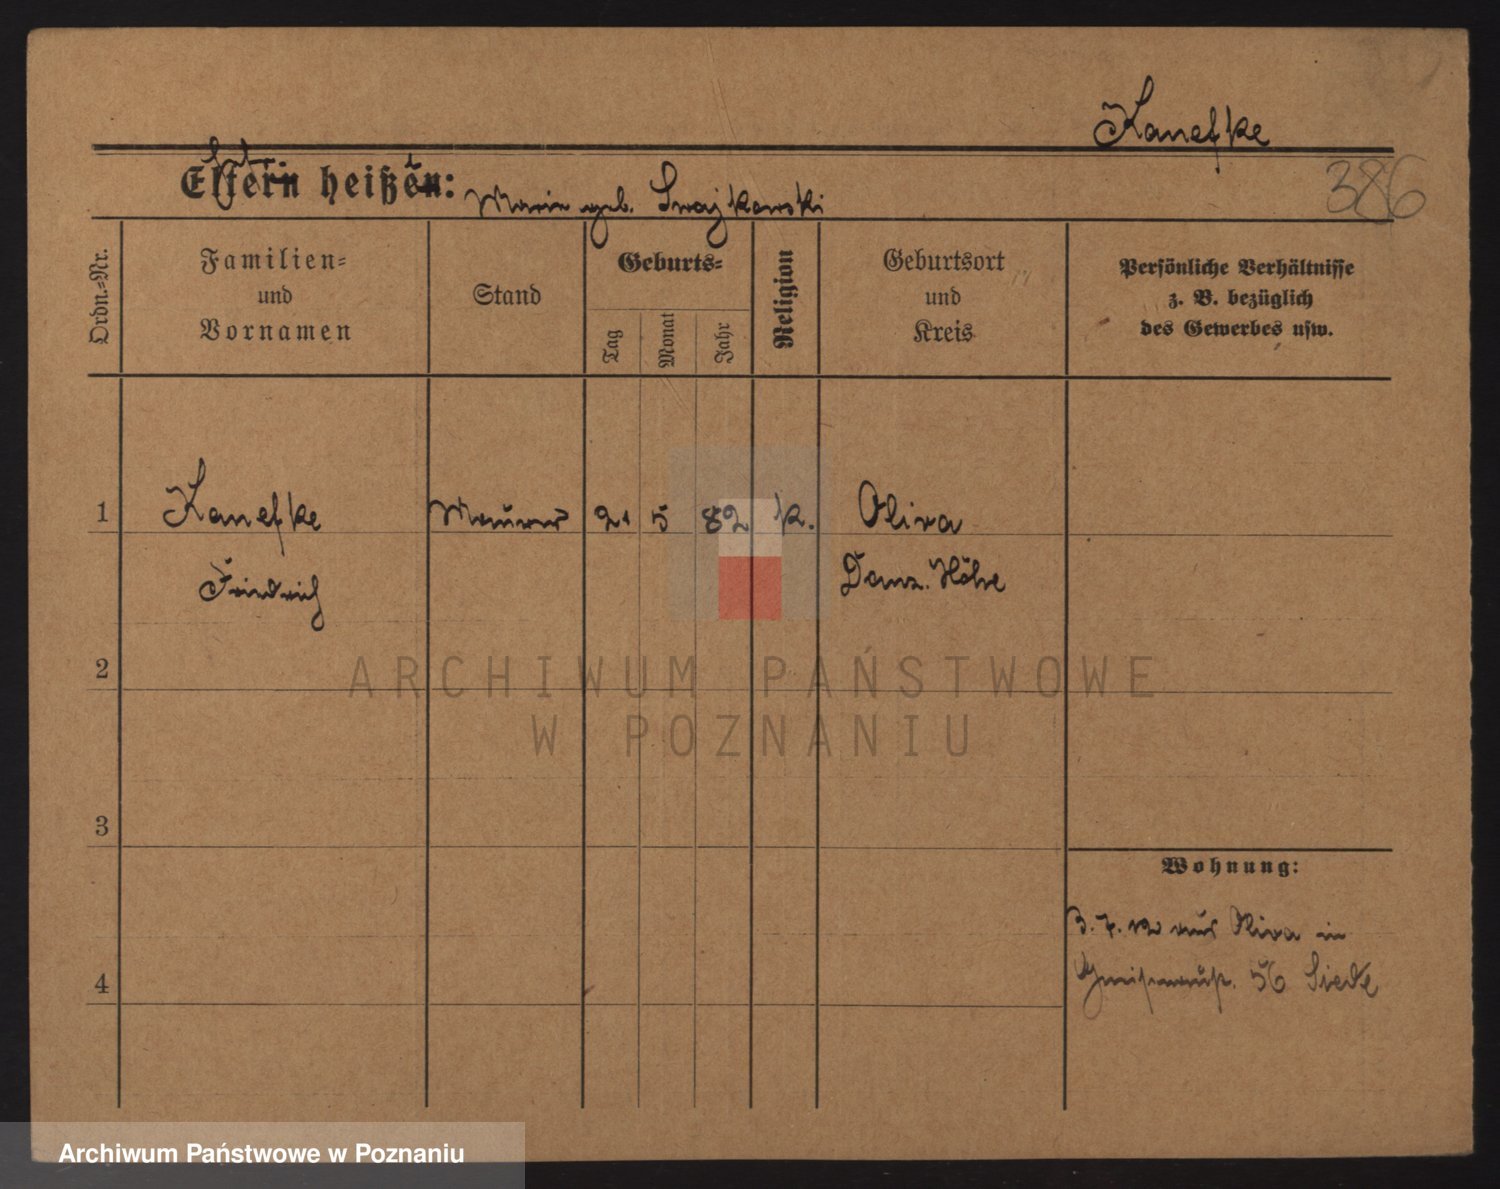 Kanefke
386
Eltern heißen:
Marie geb.
Ordn.-Nr.
Familien-
und
Vornamen
Stand
Geburts-
Tag
Monat
Jahr
Religion
Geburtsort
und
Kreis
Persönliche Verhältnisse
z. B. bezüglich
des Gewerbes usw.
1
Kanefke
Maurer
21
5
82
k.
Oliva
Friedrich
Danz. Höhe
2
3
4
Wohnung:
3. 7. 12 aus Oliva in
56
ARCHIWUM PAŃSTWOWE
W POZNANIU
Archiwum Państwowe w Poznaniu